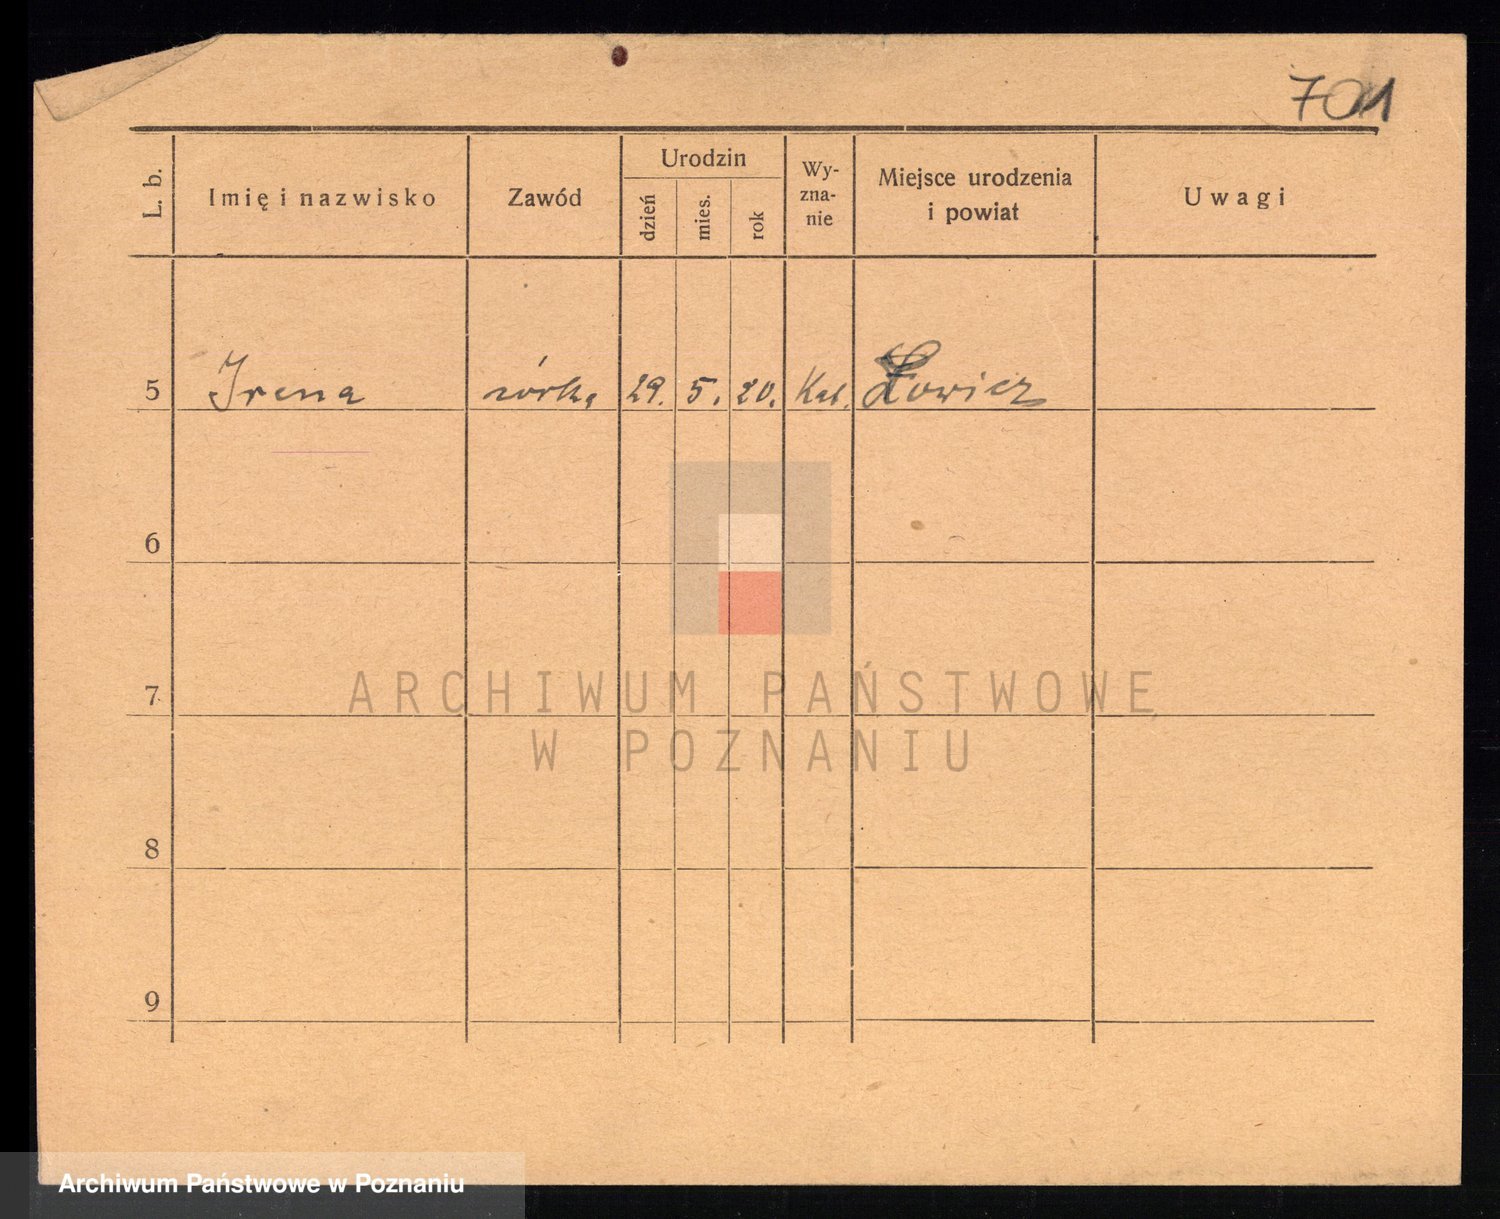 701
L. b.
Imię i nazwisko
Zawód
Urodzin
dzień
mies.
rok
Wy-
zna-
nie
Miejsce urodzenia
i powiat
Uwagi
5 Irena córka 29. 5. 20. Kat. Łowicz
6
7
8
9
ARCHIWUM PAŃSTWOWE
W POZNANIU
Archiwum Państwowe w Poznaniu